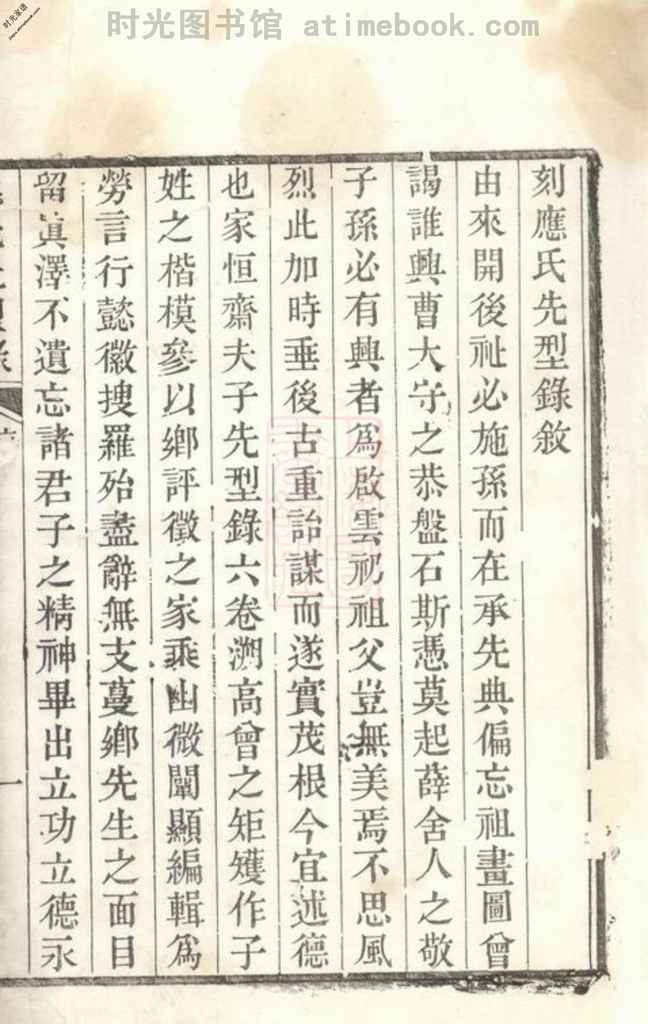 时光图书馆 atimebook.com
时光家谱
www.atimebook.com
刻應氏先型錄敘
由來開後祉必施孫而在承先典偏忘祖畫圖曾
謁誰興曹大守之恭盤石斯憑莫起薛舍人之敬
子孫必有興者爲啟雲礽祖父豈無美焉不思風
烈此加時垂後古重詒謀而遂實茂根今宜述德
也家恒齋夫子先型錄六卷溯高曾之矩矱作子
姓之楷模參以鄉評徵之家乘幽微闡顯編輯爲
勞言行懿徽搜羅殆盡辭無支蔓鄉先生之面目
留眞澤不遺忘諸君子之精神畢出立功立德永
一